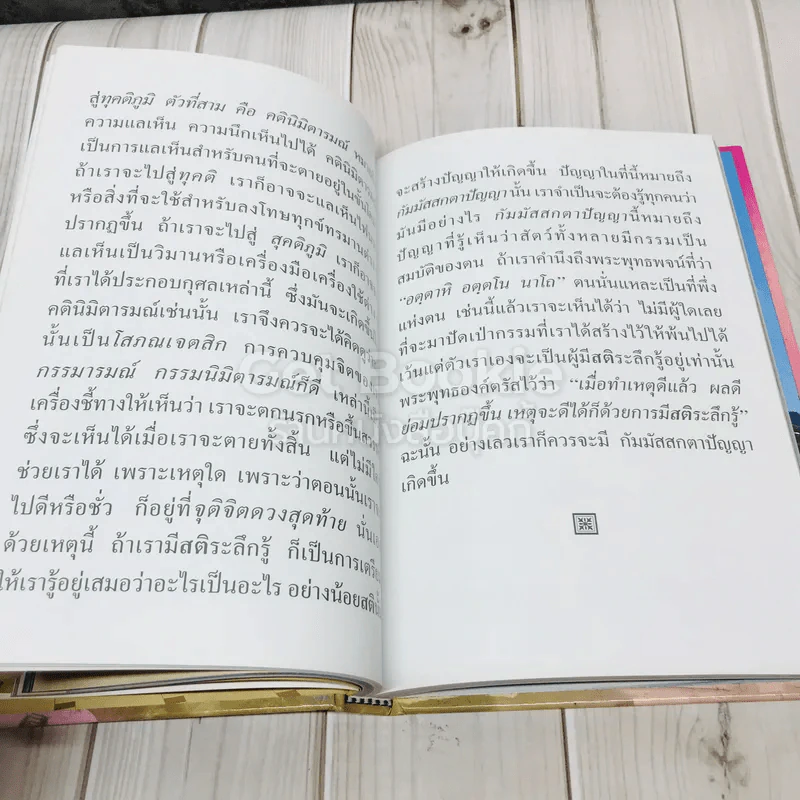 สู่ทุคติภูมิ ตัวที่สาม คือ คตินิมิตารมณ์
ความแลเห็น ความนึกเห็นไปได้ คตินิมิตาร
เป็นการแลเห็นสำหรับคนที่จะตายอยู่ในขั้น
ถ้าเราจะไปสู่ทุคติ เราก็อาจจะแลเห็นไฟ
หรือสิ่งที่จะใช้สำหรับลงโทษทุกข์ทรมาน
ปรากฏขึ้น ถ้าเราจะไปสู่ สุคติภูมิ เราก็อา
แลเห็นเป็นวิมานหรือเครื่องมือเครื่องใช้
ที่เราได้ประกอบกุศลเหล่านี้ ซึ่งมันจะเกิดขึ้น
คตินิมิตารมณ์เช่นนั้น เราจึงควรจะได้คิด
นั้นเป็นโสภณเจตสิก การควบคุมจิตของ
กรรมารมณ์ กรรมนิมิตารมณ์ก็ดี เหล่านี้
เครื่องชี้ทางให้เห็นว่า เราจะตกนรกหรือขึ้นสวรร
ซึ่งจะเห็นได้เมื่อเราจะตายทั้งสิ้น แต่ไม่มี
ช่วยเราได้ เพราะเหตุใด เพราะว่าตอนนั้นเรา
ไปดีหรือชั่ว ก็อยู่ที่จุติจิตดวงสุดท้าย นั่น
ด้วยเหตุนี้ ถ้าเรามีสติระลึกรู้ ก็เป็นการเตรี
ให้เรารู้อยู่เสมอว่าอะไรเป็นอะไร อย่างน้อยสติ
จะสร้างปัญญาให้เกิดขึ้น ปัญญาในที่นี้หมายถึง
กัมมัสสกตาปัญญานั้น เราจำเป็นจะต้องรู้ทุกคนว่า
มันมีอย่างไร กัมมัสสกตาปัญญานี้หมายถึง
ปัญญาที่รู้เห็นว่าสัตว์ทั้งหลายมีกรรมเป็น
สมบัติของตน ถ้าเราคำนึงถึงพระพุทธพจน์ที่ว่า
“อตฺตาหิ อตฺตโน นาโถ” ตนนั่นแหละเป็นที่พึ่ง
แห่งตน เช่นนี้แล้วเราจะเห็นได้ว่า ไม่มีผู้ใดเลย
ที่จะมาปัดเป่ากรรมที่เราได้สร้างไว้ให้พ้นไปได้
เว้นแต่ตัวเราเองจะเป็นผู้มีสติระลึกรู้อยู่เท่านั้น
พระพุทธองค์ตรัสไว้ว่า “เมื่อทำเหตุดีแล้ว ผลดี
ย่อมปรากฏขึ้น เหตุจะดีได้ก็ด้วยการมีสติระลึกรู้”
ฉะนั้น อย่างเลวเราก็ควรจะมี กัมมัสสกตาปัญญา
เกิดขึ้น
Get Bookie
ร้านหนังสือบุคกี้